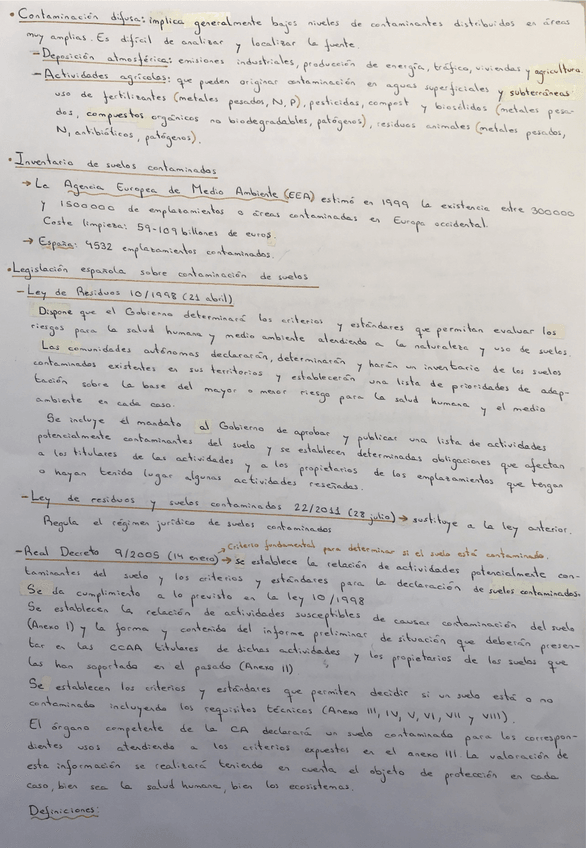 • Contaminación difusa: implica generalmente bajos niveles de contaminantes distribuidos en áreas
muy amplias. Es difícil de analizar y localizar la fuente.
- Deposición atmosférica: emisiones industriales, producción de energía, tráfico, viviendas y agricultura
- Actividades agrícolas: que pueden originar contaminación en aguas superficiales y subterráneas
uso de fertilizantes (metales pesados, N, P), pesticidas, compost y biosólidos (metales pesa-
dos, compuestos orgánicos no biodegradables, patógenos), residuos animales (metales pesados,
N, antibióticos, patógenos).
• Inventario de suelos contaminados
→ La Agencia Europea de Medio Ambiente (EEA) estimó en 1999 la existencia entre 300000
y 1500000 de emplazamientos o áreas contaminadas en Europa occidental.
Coste limpieza: 59-109 billones de euros.
→ España: 4532 emplazamientos contaminados.
• Legislación española sobre contaminación de suelos
- Ley de Residuos 10/1998 (21 abril)
Dispone que el Gobierno determinará los criterios y estándares que permitan evaluar los
riesgos para la salud humana y medio ambiente atendiendo a la naturaleza y uso de suelos.
Las comunidades autónomas declararán, determinarán y harán un inventario de los suelos
contaminados existentes en sus territorios y establecerán una lista de prioridades de adap-
tación sobre la base del mayor o menor riesgo para la salud humana y el medio
ambiente en cada caso.
Se incluye el mandato al Gobierno de aprobar y publicar una lista de actividades
potencialmente contaminantes del suelo y se establecen determinadas obligaciones que afectan
a los titulares de las actividades y a los propietarios de los emplazamientos que tengan
o hayan tenido lugar algunas actividades reseñadas.
- Ley de residuos y suelos contaminados 22/2011 (28 julio) → sustituye a la ley anterior.
Regula el régimen jurídico de suelos contaminados
→ Criterio fundamental para determinar si el suelo está contaminado.
- Real Decreto 9/2005 (14 enero) → se establece la relación de actividades potencialmente con-
taminantes del suelo y los criterios y estándares para la declaración de suelos contaminados.
Se da cumplimiento a lo previsto en la ley 10/1998
Se establecen la relación de actividades susceptibles de causar contaminación del suelo
(Anexo I) y la forma y contenido del informe preliminar de situación que deberán presen-
tar en las CCAA titulares de dichas actividades y los propietarios de los suelos que
las han soportado en el pasado (Anexo II)
Se establecen los criterios y estándares que permiten decidir si un suelo está o no
contaminado incluyendo los requisitos técnicos (Anexo III, IV, V, VI, VII y VIII).
El órgano competente de la CA declarará un suelo contaminado para los correspon-
dientes usos atendiendo a los criterios expuestos en el anexo III. La valoración de
esta información se realizará teniendo en cuenta el objeto de protección en cada
caso, bien sea la salud humana, bien los ecosistemas.
Definiciones: